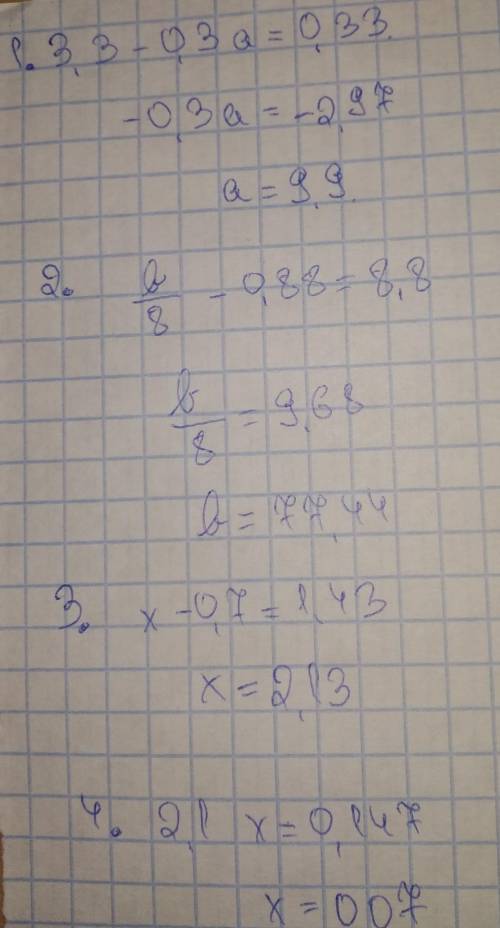 1. 3,3 - 0,3 a = 0,33.
-0,3 a = -2,97
a = 9,9.
2. b/8 - 0,88 = 8,8
b/8 = 9,68
b = 77,44
3. x - 0,7 = 1,43
x = 2,13
4. 2,1 x = 0,147
x = 007